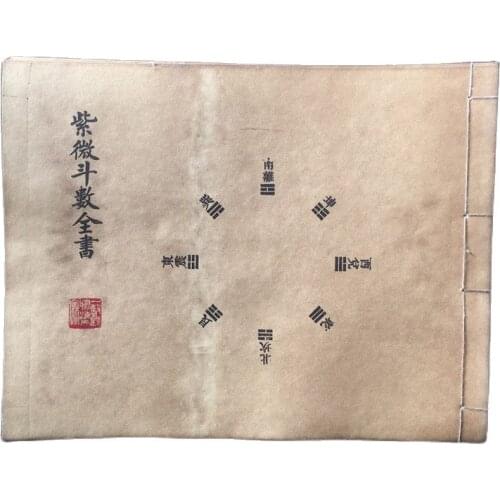 紫微斗數全書
南離
巽
坤
東震
西兌
艮
乾
北坎